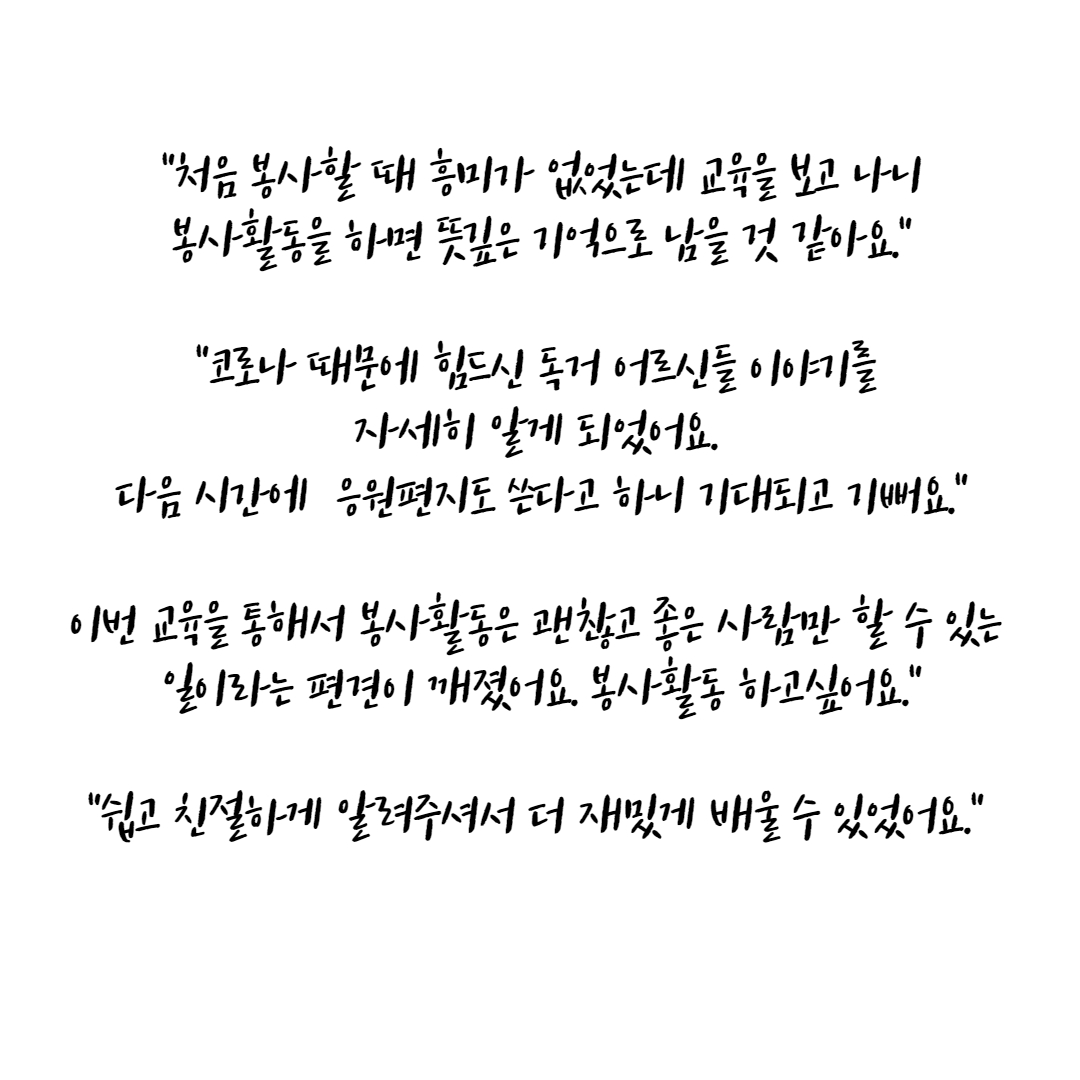 "처음 봉사할 때 흥미가 없었는데 교육을 보고 나니
봉사활동을 하면 뜻깊은 기억으로 남을 것 같아요."
"코로나 때문에 힘드신 독거 어르신들 이야기를
자세히 알게 되었어요.
다음 시간에 응원편지도 쓴다고 하니 기대되고 기뻐요."
이번 교육을 통해서 봉사활동은 괜찮고 좋은 사람만 할 수 있는
일이라는 편견이 깨졌어요. 봉사활동 하고싶어요."
"쉽고 친절하게 알려주셔서 더 재밌게 배울 수 있었어요."